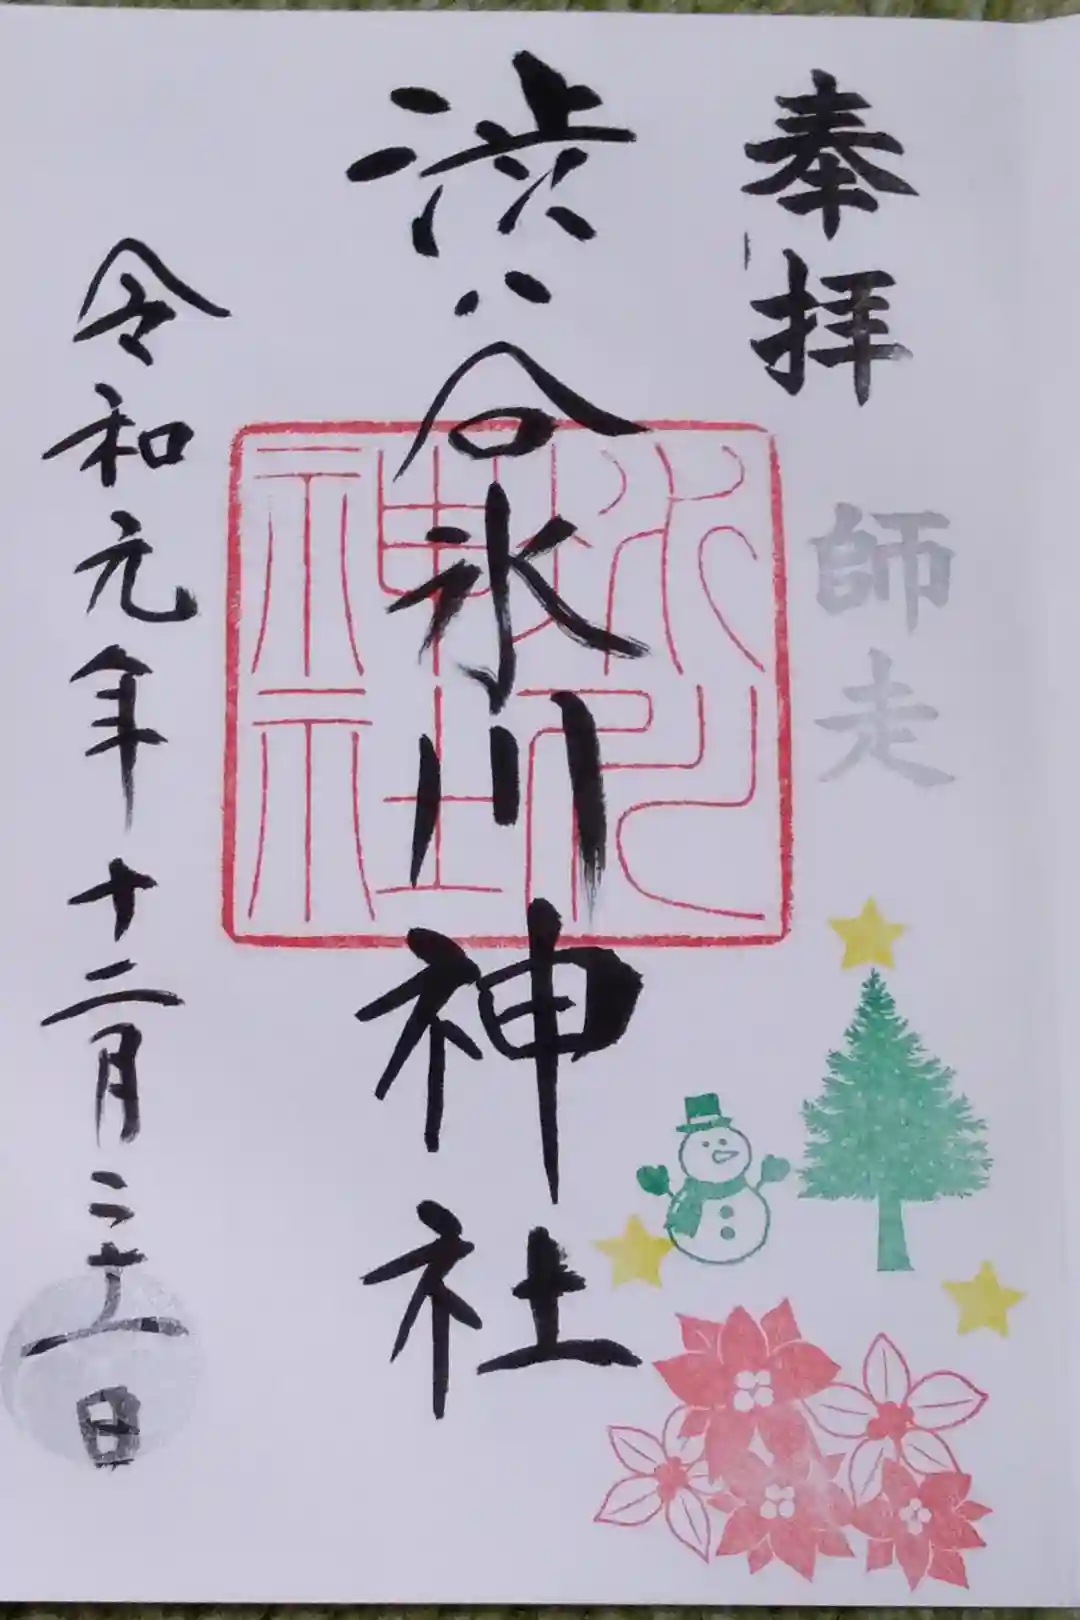 奉拝
師走
渋谷氷川神社
令和元年十二月二十一日